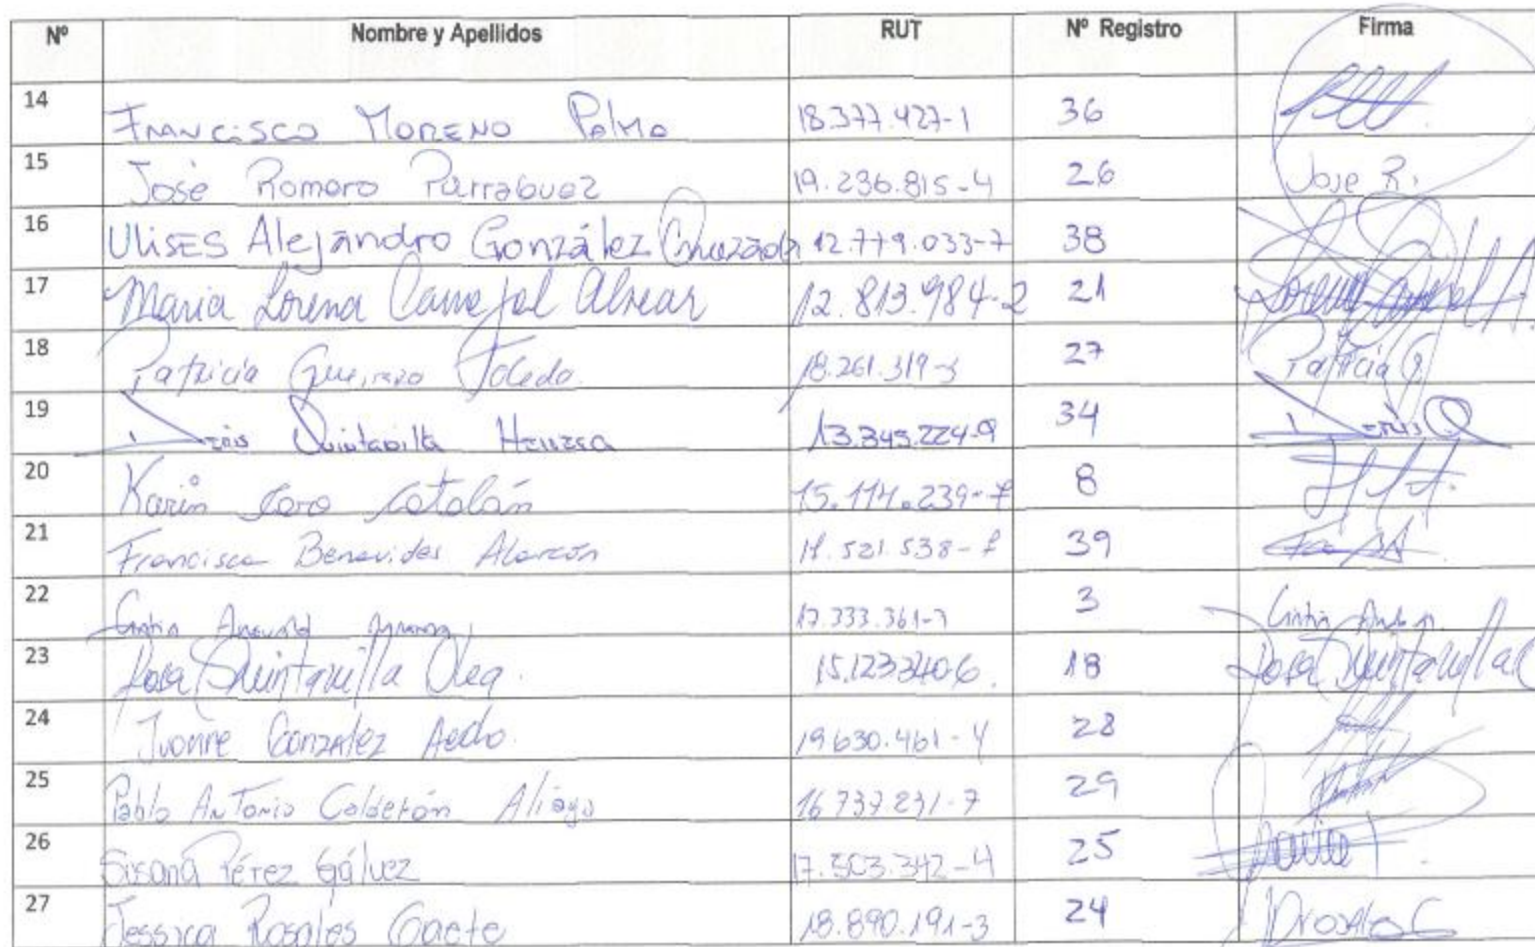 Nº Nombre y Apellidos RUT Nº Registro Firma
14 Francisco Moreno Palma 18.377.427-1 36
15 José Romero Parraguez 19.236.815-4 26 Jose R.
16 Ulises Alejandro González 12.779.033-7 38
17 Maria Lorena Carvajal Alvear 12.813.984-2 21
18 Patricia Guerrero Toledo 18.261.319-3 27 Patricia G
19 Quintanilla 13.345.224-9 34
20 Karin Caro Catalán 15.114.239-7 8
21 Francisca Benavides Alarcón 39
22 Cintia 17.333.361-7 3 Cintia
23 Rosa Quintanilla Olea. 15.1233406. 18 Rosa Quintanilla
24 Ivonne Gonzalez Aedo. 19.630.461-4 28
25 Pablo Antonio Calderón Aliaga 16.737.231-7 29
26 Susana Pérez Gálvez 17.503.342-4 25
27 Jessica Rosales Gaete 18.890.191-3 24